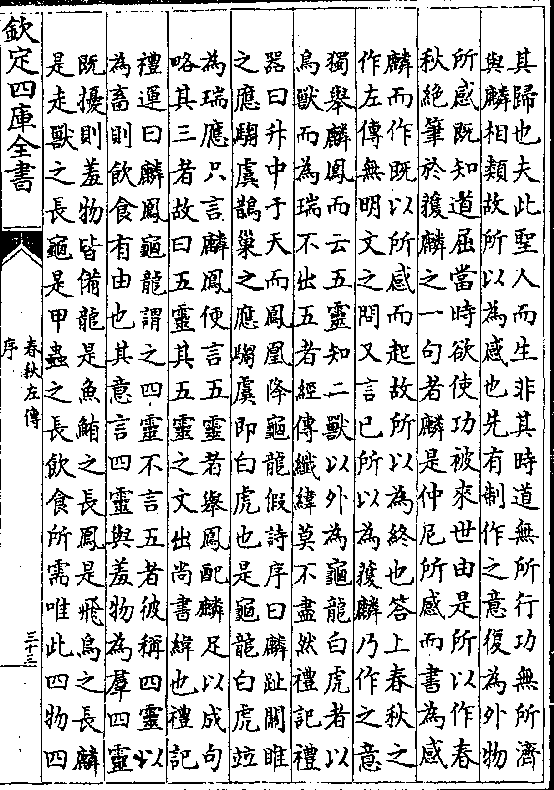 其歸也夫此聖人而生非其時道無所行功無所濟
與麟相類故所以為感也先有制作之意復為外物
所感既知道屈當時欲使功被來世由是所以作春
秋絶筆於獲麟之一句者麟是仲尼所感而書為感
麟而作既以所感而起故所以為終也答上春秋之
作左傳無明文之問又言已所以為獲麟乃作之意
獨舉麟鳳而云五靈知二獸以外為龜龍白虎者以
鳥獸而為瑞不出五者經傳纖緯莫不盡然禮記禮
器曰升中于天而鳳凰降龜龍假詩序曰麟趾關雎
之應騶虞鵲巢之應騶虞即白虎也是龜龍白虎竝
為瑞應只言麟鳳便言五靈者舉鳳配麟足以成句
略其三者故曰五靈其五靈之文出尚書緯也禮記
禮運曰麟鳳龜龍謂之四靈不言五者彼稱四靈以
為畜則飲食有由也其意言四靈與羞物為羣四靈
既擾則羞物皆備龍是魚鮪之長鳳是飛鳥之長麟
是走獸之長龜是甲蟲之長飲食所需唯此四物四
欽定四庫全書
春秋左傳
序
三十三